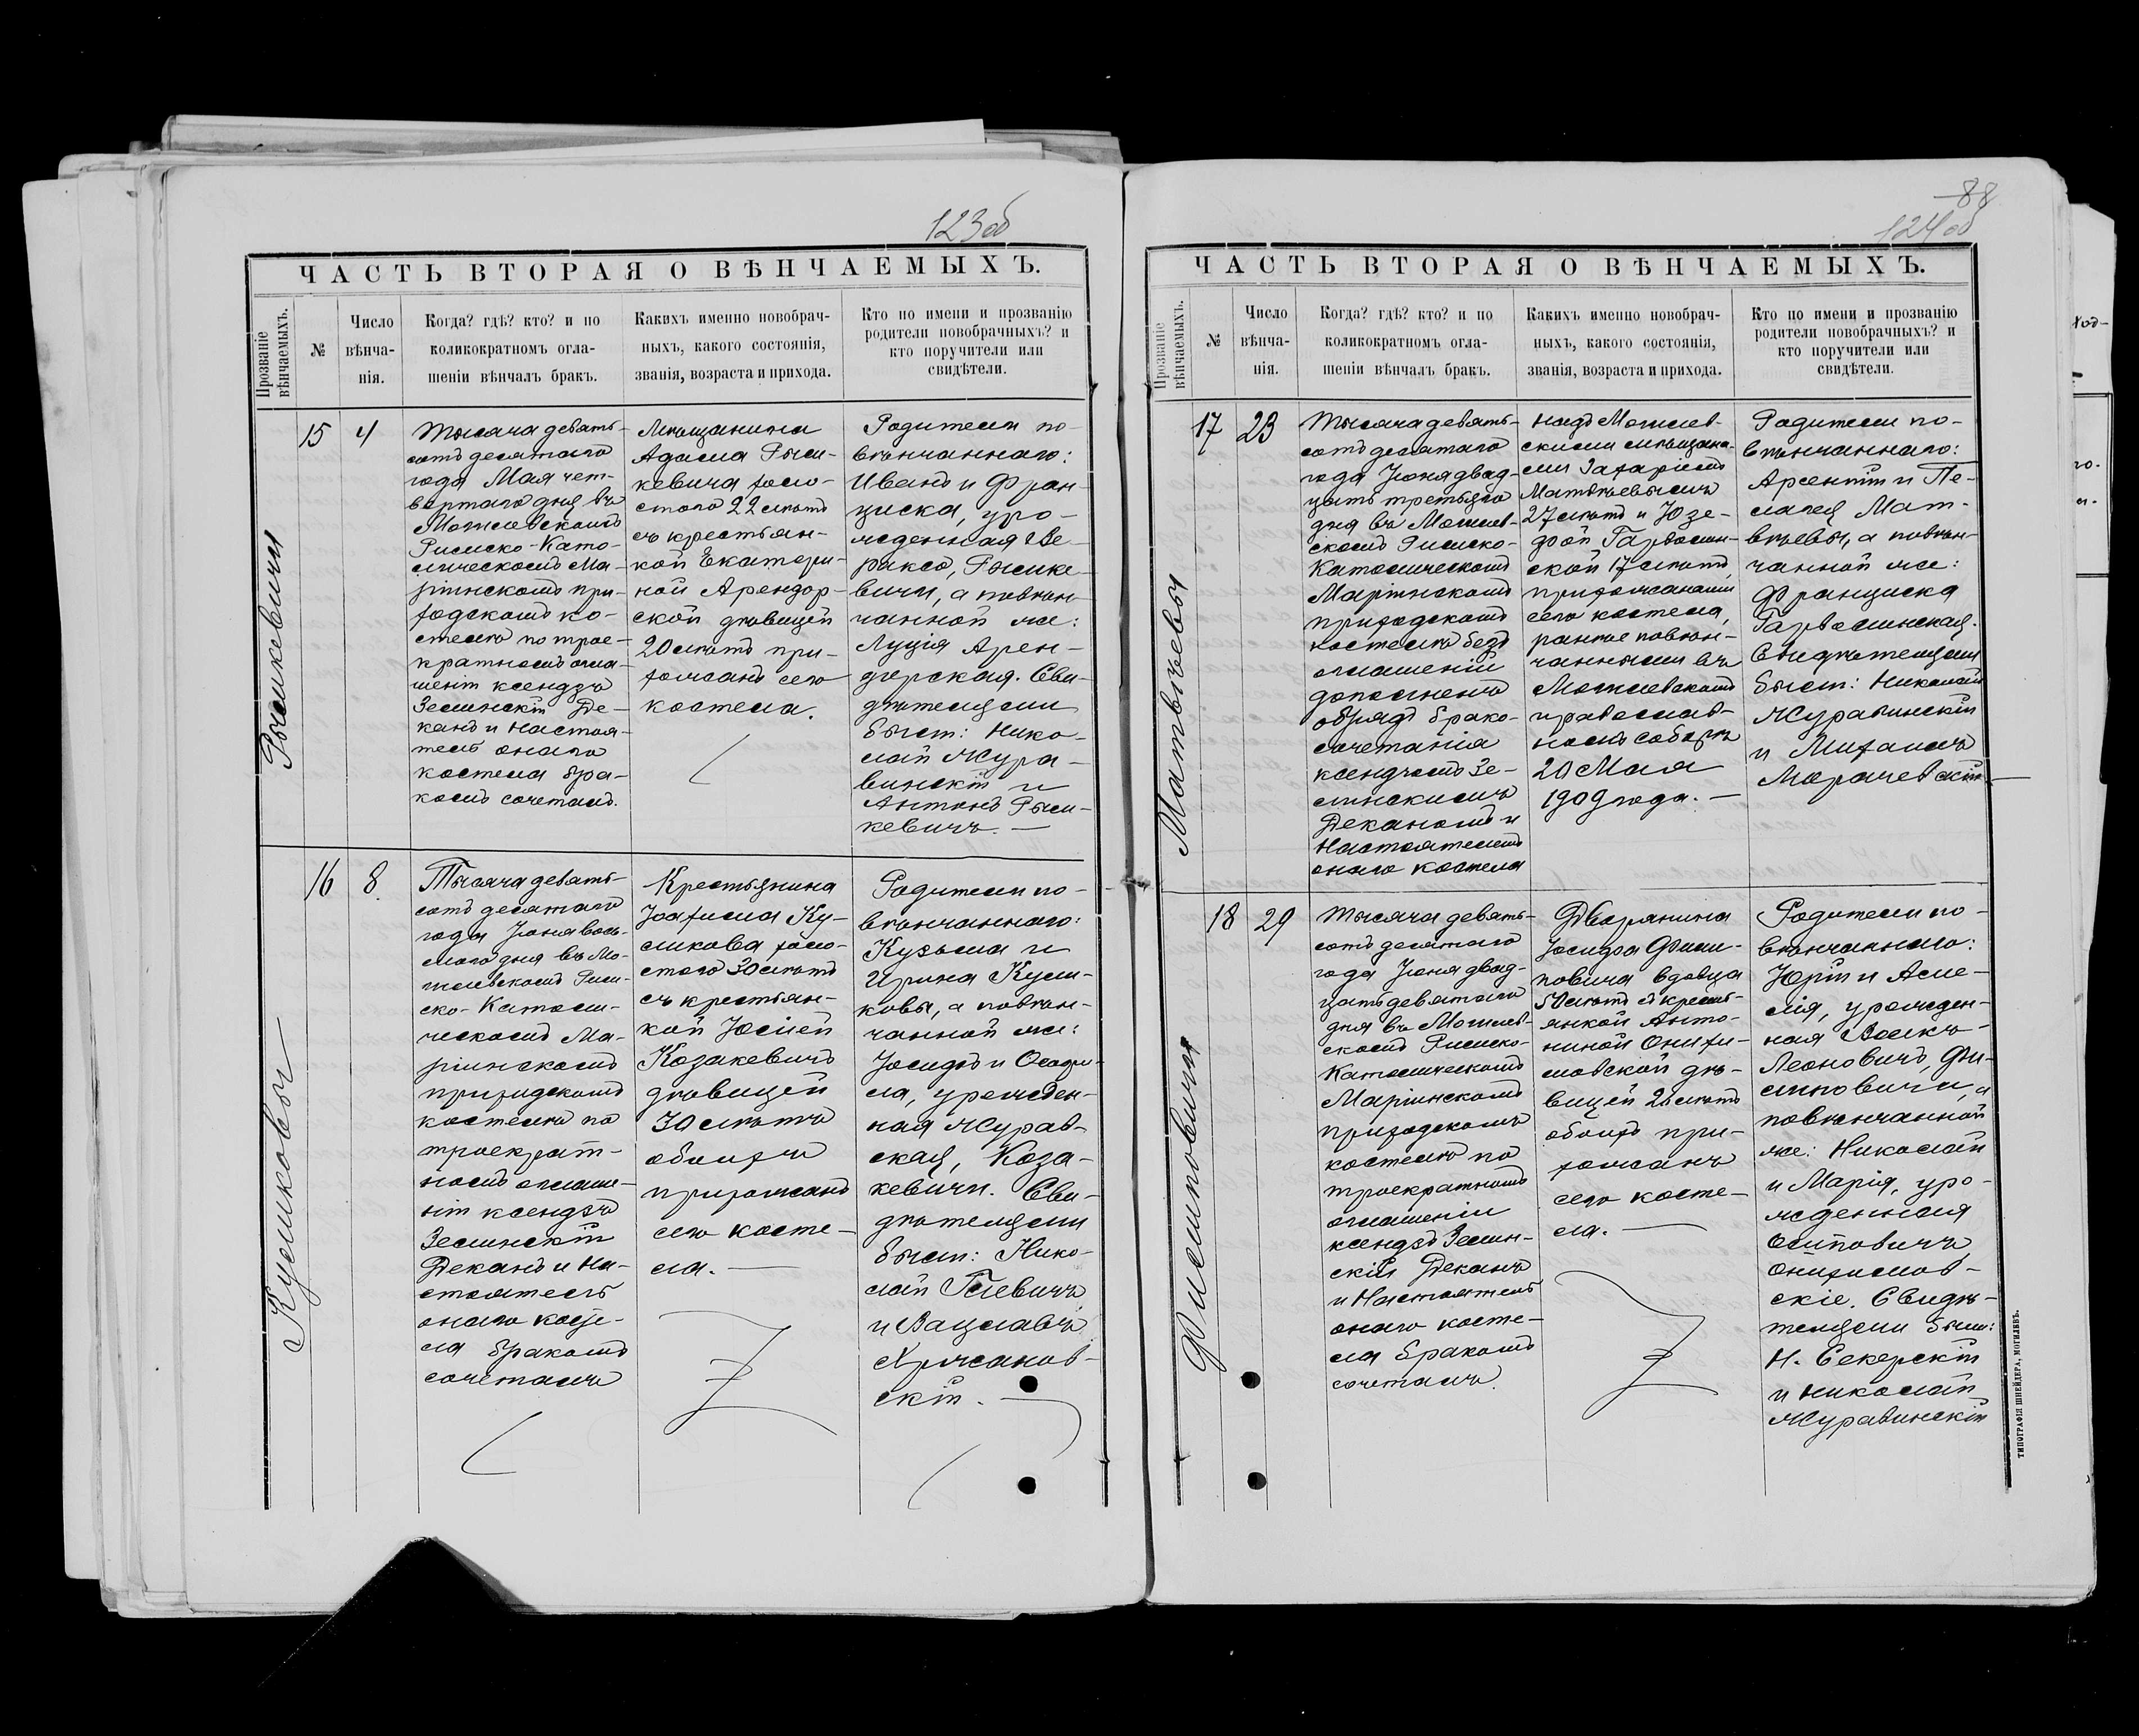 123 об
ЧАСТЬ ВТОРАЯ О ВѢНЧАЕМЫХЪ.
Прозваніе
вѣнчаемыхъ.
№
Число
вѣнча-
нія.
Когда? гдѣ? кто? и по
коликократномъ огла-
шеніи вѣнчалъ бракъ.
Какихъ именно новобрач-
ныхъ, какого состоянія,
званія, возраста и прихода.
Кто по имени и прозванію
родители новобрачныхъ? и
кто поручители или
свидѣтели.
Рымкевичи
15
4
Тысяча девять-
сотъ десятаго
года Мая чет-
вертаго дня въ
Могилевскомъ
Римско-Като-
лическомъ Ма-
ріинскомъ при-
ходскомъ ко-
стелѣ по трое-
кратномъ огла-
шеніи ксендзъ
Зелинскій Де-
канъ и Настоя-
тель онаго
костела бра-
комъ сочеталъ.
Мѣщанина
Адама Рым-
кевича холо-
стого 22 лѣтъ
съ крестьян-
кой Екатери-
ной Арендор-
ской дѣвицей
20 лѣтъ при-
хожанъ сего
костела.
Родители по-
вѣнчаннаго:
Иванъ и Фран-
циска, уро-
жденная
Рымке-
вичи, а повѣн-
чанной же:
Луція Арен-
дорская. Сви-
дѣтелями
были: Нико-
лай Жура-
винскій и
Антонъ Рым-
кевичъ. —
Куликовы
16
8
Тысяча девять-
сотъ десятаго
года Іюня вось-
мого дня въ Мо-
гилевскомъ Рим-
ско-Католи-
ческомъ Ма-
ріинскомъ
приходскомъ
костелѣ по
троекрат-
номъ оглаше-
ніи ксендзъ
Зелинскій
Деканъ и На-
стоятель
онаго косте-
ла бракомъ
сочеталъ
Крестьянина
Іоахима Ку-
ликова холо-
стого 30 лѣтъ
съ крестьян-
кой Юліей
Козакевичъ
дѣвицей
30 лѣтъ
обоихъ
прихожанъ
сего косте-
ла. —
Родители по-
вѣнчаннаго:
Кузьма и
Ирина Кули-
ковы, а повѣн-
чанной же:
Іосифъ и
урожден-
ная Журав-
ская, Коза-
кевичи. Сви-
дѣтелями
были: Нико-
лай
и Вацлавъ
Хржанов-
скій. —
88
124 об
ЧАСТЬ ВТОРАЯ О ВѢНЧАЕМЫХЪ.
Прозваніе
вѣнчаемыхъ.
№
Число
вѣнча-
нія.
Когда? гдѣ? кто? и по
коликократномъ огла-
шеніи вѣнчалъ бракъ.
Какихъ именно новобрач-
ныхъ, какого состоянія,
званія, возраста и прихода.
Кто по имени и прозванію
родители новобрачныхъ? и
кто поручители или
свидѣтели.
Матвѣевы
17
23
Тысяча девять-
сотъ десятаго
года Іюня двад-
цать третьяго
дня въ Могилев-
скомъ Римско-
Католическомъ
Маріинскомъ
приходскомъ
костелѣ безъ
оглашеній
дополненъ
обрядъ брако-
сочетанія
ксендзомъ Зе-
линскимъ
Деканомъ и
Настоятелемъ
онаго костела
надъ Могилев-
скими мѣщана-
ми Захаріемъ
Матвѣевымъ
27 лѣтъ и Юзе-
фой Гарвалин-
ской 17 лѣтъ,
прихожанами
сего костела,
ранѣе повѣн-
чанными въ
Могилевскомъ
православ-
номъ соборѣ
20 Мая
1909 года. —
Родители по-
вѣнчаннаго:
Арсентій и Пе-
лагея Мат-
вѣевы, а повѣн-
чанной же:
Франциска
Гарвалинская.
Свидѣтелями
были: Николай
Журавинскій
и Михаилъ
Морачевскій —
Филиповичи
18
29
Тысяча девять-
сотъ десятаго
года Іюня двад-
цать девятаго
дня въ Могилев-
скомъ Римско-
Католическомъ
Маріинскомъ
приходскомъ
костелѣ по
троекратномъ
оглашеніи
ксендзъ Зелин-
скій Деканъ
и Настоятель
онаго косте-
ла бракомъ
сочеталъ.
Дворянина
Іосифа Фили-
повича вдовца
50 лѣтъ съ кресть-
янкой Анто-
ниной Онихи-
мовской дѣ-
вицей лѣтъ
обоихъ при-
хожанъ
сего косте-
ла. —
Родители по-
вѣнчаннаго:
Юрій и Аме-
лія, урожден-
ная Волкъ-
Леоновичъ, Фи-
липовичи, а
повѣнчанной
же: Николай
и Марія, уро-
жденная
Осиповичъ,
Онихимов-
скіе. Свидѣ-
телями были:
Н. Секерскій
и Николай
Журавинскій
ТИПОГРАФІЯ ШНЕЙДЕРА, МОГИЛЕВЪ.